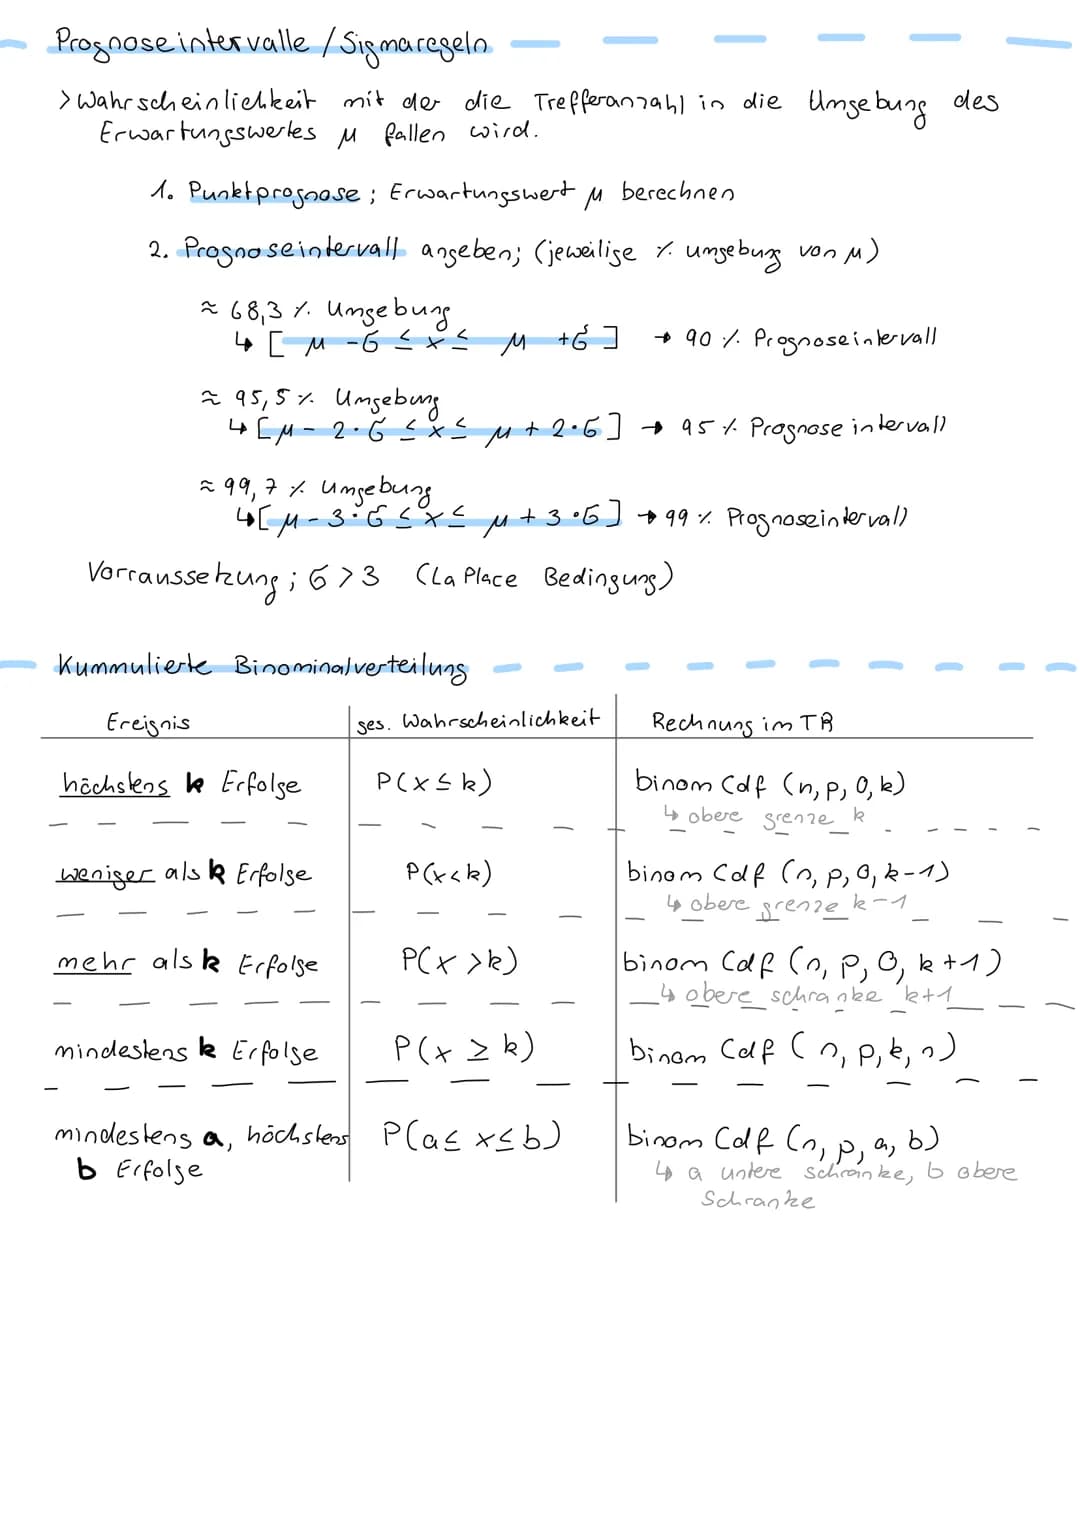 Prognoseintervalle / Sigmaregeln
> Wahrscheinlichkeit mit der die Trefferanzahl in die Umgebung des
Erwartungswertes μ fallen wird.
1. Punktprognose ; Erwartungswert μ berechnen
2. Prognoseintervall angeben; (jeweilige % umgebung von μ)
≈ 68,3 % Umgebung
↳ [ μ - σ ≤ x ≤ μ + σ ] → 90 % Prognoseintervall
≈ 95,5 % Umgebung
↳ [ μ - 2·σ ≤ x ≤ μ + 2·σ ] → 95 % Prognoseintervall
≈ 99,7 % Umgebung
↳ [ μ - 3·σ ≤ x ≤ μ + 3·σ ] → 99 % Prognoseintervall
Vorraussetzung ; σ > 3 (La Place Bedingung)
Kummulierte Binominalverteilung
Ereignis ges. Wahrscheinlichkeit Rechnung im TR
höchstens k Erfolge P(x ≤ k) binom Cdf (n, p, 0, k)
↳ obere grenze k
weniger als k Erfolge P(x < k) binom Cdf (n, p, 0, k-1)
↳ obere grenze k-1
mehr als k Erfolge P(x > k) binom Cdf (n, p, 0, k+1)
↳ obere schranke k+1
mindestens k Erfolge P(x ≥ k) binom Cdf (n, p, k, n)
mindestens a, höchstens P(a ≤ x ≤ b) binom Cdf (n, p, a, b)
b Erfolge ↳ a untere schranke, b obere
Schranke